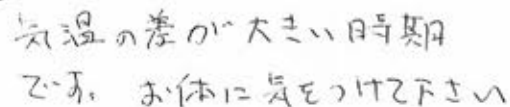 気温の差が大きい時期
です。お体に気をつけて下さい